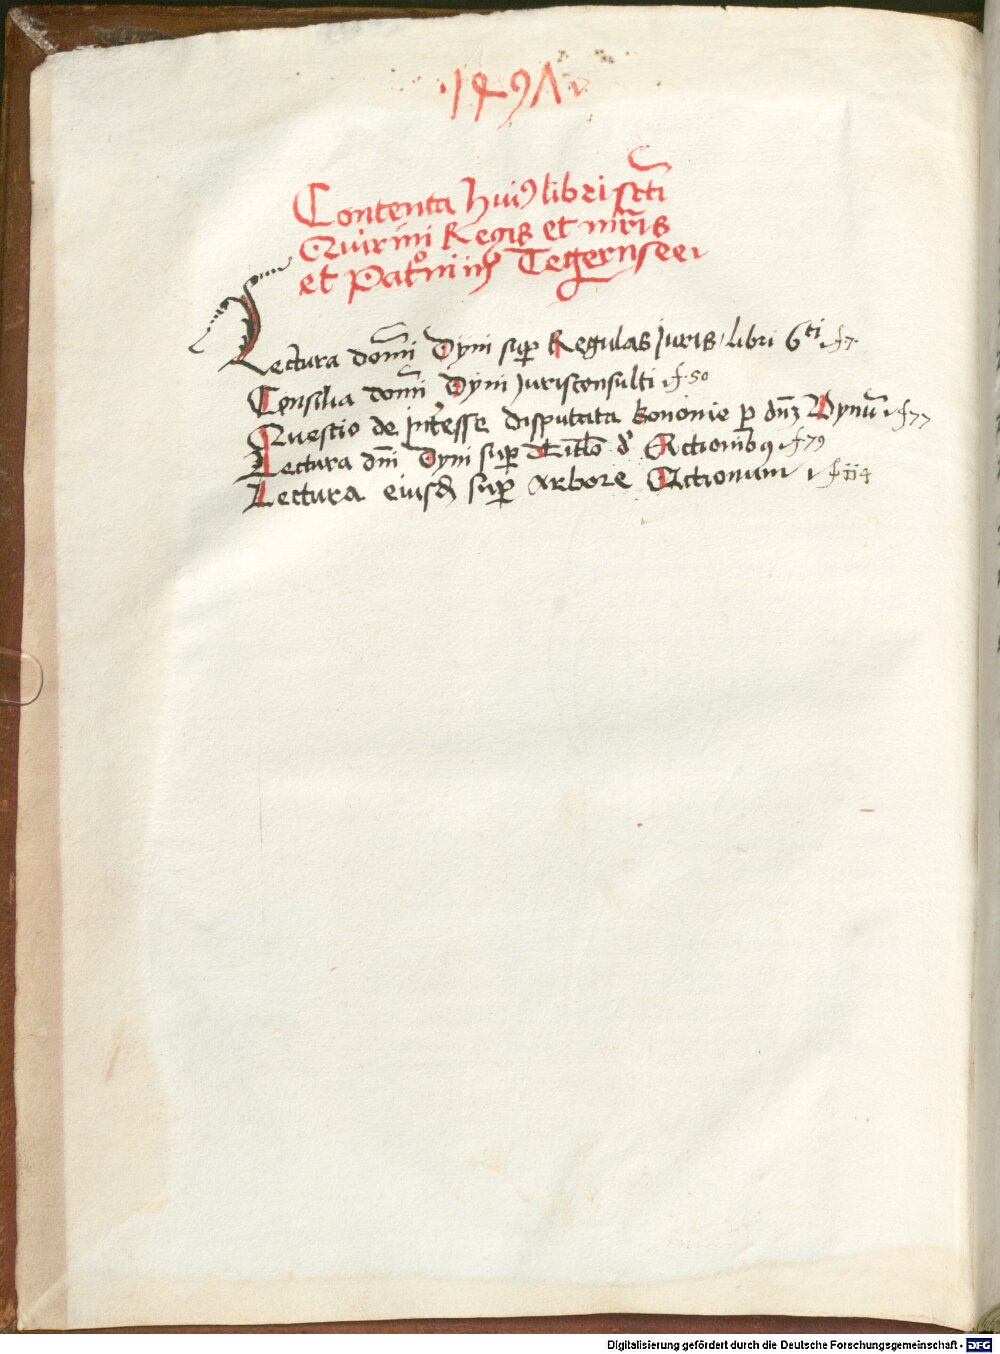 ·1491
Contenta huiꝯ libri scti
Quirini Regis et mris
et Patoni in Tegernsee
Lectura domi Dyni sup Regulas Juris libri 6ti f 7
Consilia domi Dyni Jurisconsulti f 50
Questio de intesse disputata bononie p dnz Dynu f 77
Lectura dni Dyni sup titlo d Actionibꝯ f 79
Lectura eiusd sup arbore Actionum f 114
Digitalisierung gefördert durch die Deutsche Forschungsgemeinschaft - DFG